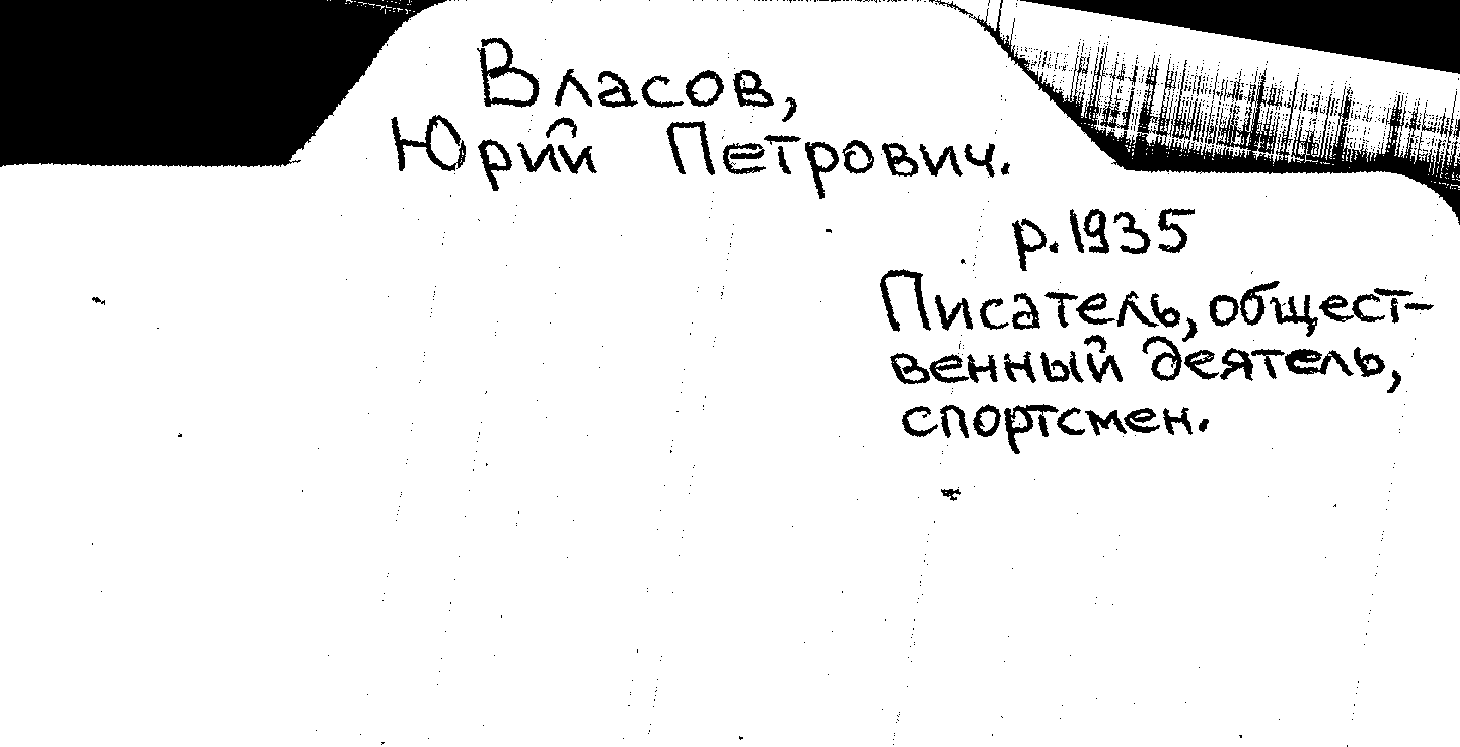 Власов,
Юрий Петрович.
р. 1935
Писатель, общест-
венный деятель,
спортсмен.